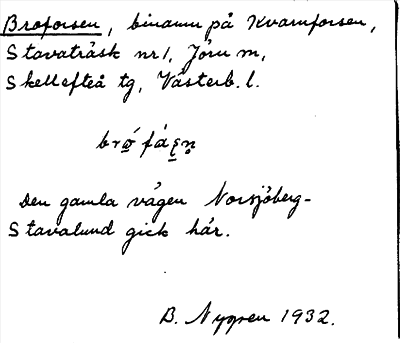 Broforsen, binamn på Kvarnforsen,
Stavaträsk nr 1, Jörn sn,
Skellefteå tg, Västerb. l.
Den gamla vägen Norsjöberg-
Stavalund gick här.
B. 1932.